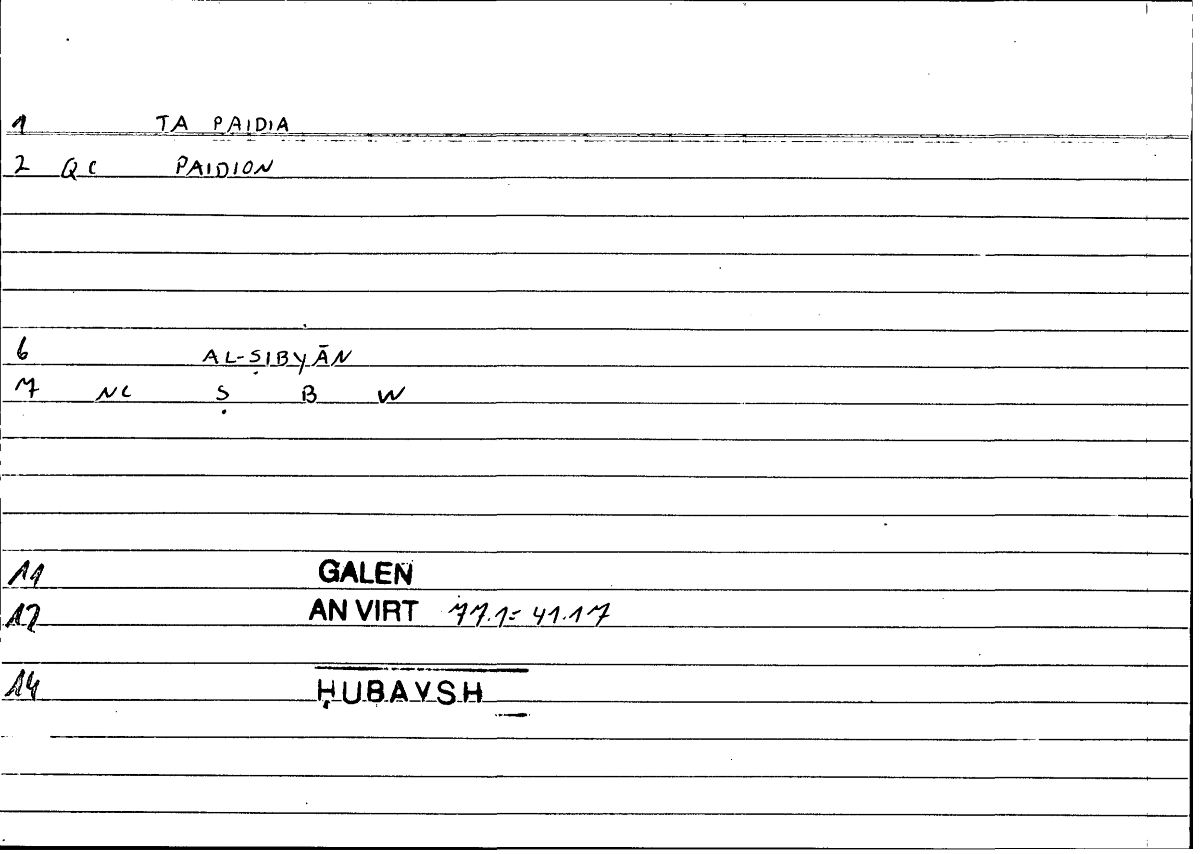 1 TA PAIDIA
2 QC PAIDION
6 AL-ṢIBYĀN
7 NC Ṣ B W
11 GALEN
12 AN VIRT 77.1= 41.17
14 ḤUBAYSH